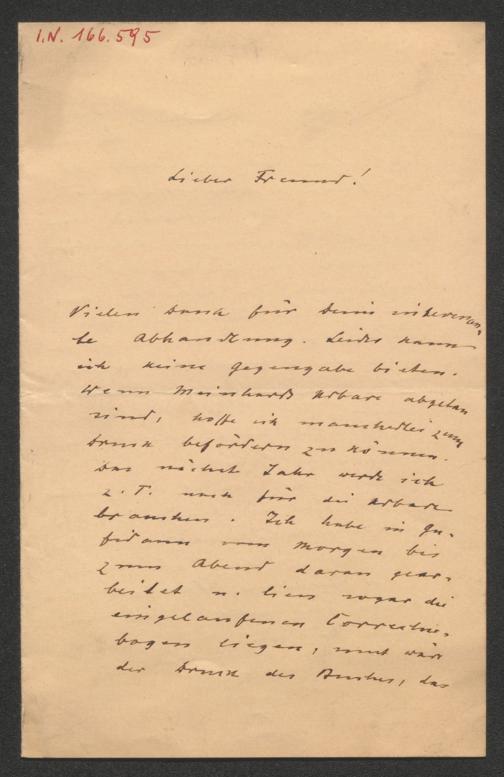 I.N. 166.595
Lieber Freund!
Vielen Dank für Deine interessan-
te Abhandlung. Leider kann
ich keine Gegengabe bieten.
Wenn Meinhards Arbare abgetan
sind, hoffe ich mancherlei zum
Druck befördern zu können.
Das nächste Jahr werde ich
z. T. noch für die Arbare
brauchen. Ich habe in
vom Morgen bis
zum Abend daran gear-
beitet u. liess sogar die
eingelaufenen Correctur-
bogen liegen; sonst wäre
der Druck des Buches, das